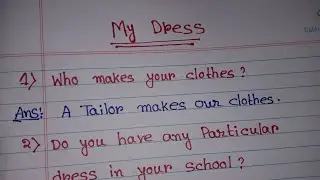 My Dress
1) Who makes your clothes?
Ans: A Tailor makes our clothes.
2) Do you have any Particular
dress in your school?